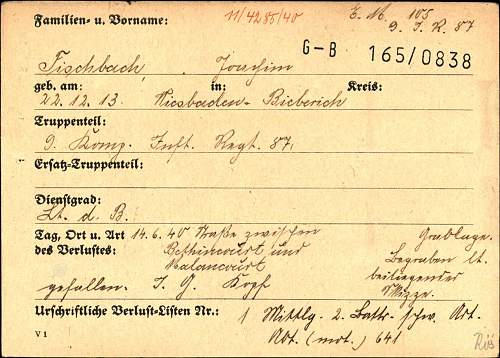 11/4285/40
E. M. 105
9. I. R. 87
Familien- u. Vorname:
G-B 165/0838
Fischbach, Joachim
geb. am: in: Kreis:
22.12.13. Wiesbaden-Bieberich
Truppenteil:
9. Komp. Inft. Regt. 87.
Ersatz-Truppenteil:
Dienstgrad:
Lt. d. B.
Tag, Ort u. Art 14.6.40 Straße zwischen
des Verlustes: Bethincourt und
Malancourt
gefallen. I. G. Kopf
Grablage.
Begraben lt.
beiliegender
Skizze.
Urschriftliche Verlust-Listen Nr.: 1 Mittlg. 2. Battr. schw. Art.
Abt. (mot.) 641
V 1